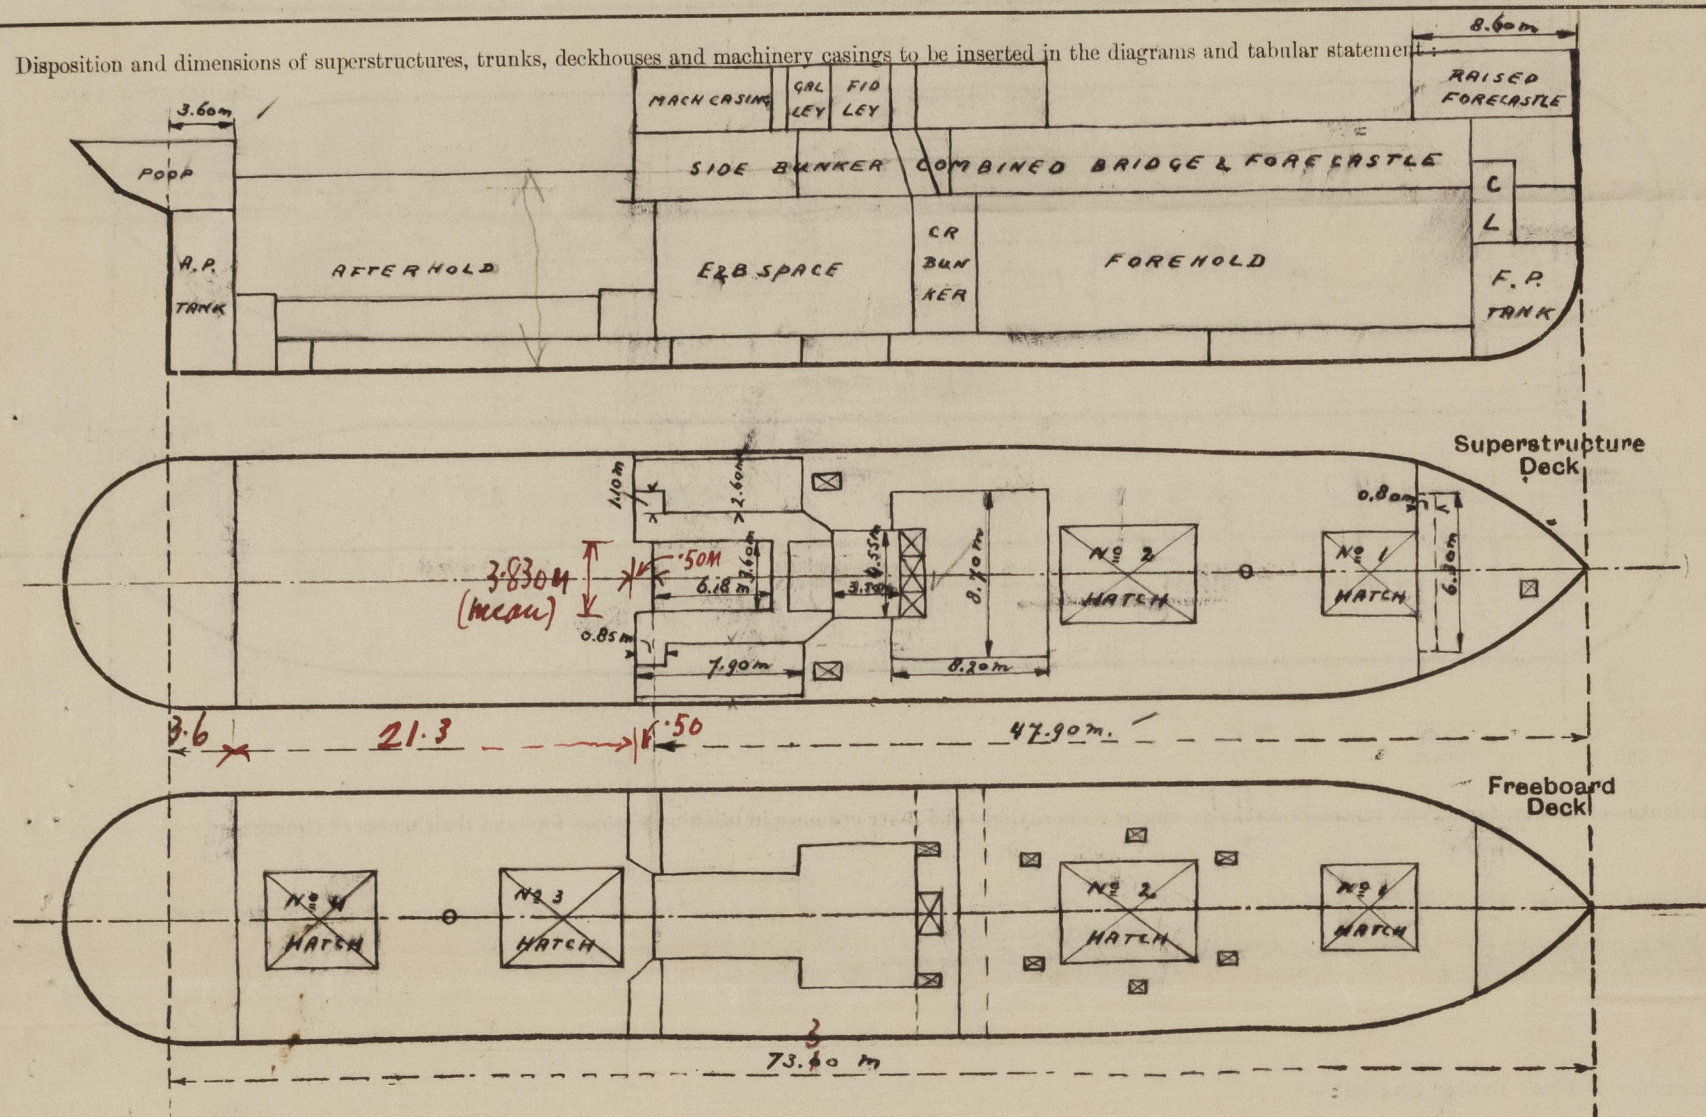 8.60m
Disposition and dimensions of superstructures, trunks, deckhouses and machinery casings to be inserted in the diagrams and tabular statement :—
3.60m
MACH CASING
GAL
LEY
FID
LEY
RAISED
FORECASTLE
POOP
SIDE BUNKER
COMBINED BRIDGE & FORECASTLE
C
L
A.P.
TANK
AFTERHOLD
E&B SPACE
CR
BUN
KER
FOREHOLD
F.P.
TANK
Superstructure
Deck
1.10m
2.60m
0.80m
3.830m
(mean)
.50M
6.18m
3.60m
4.55m
8.70m
No 2
HATCH
No 1
HATCH
6.30m
0.85m
7.90m
8.20m
3.6
21.3
.50
47.90m.
Freeboard
Deck
No 4
HATCH
No 3
HATCH
No 2
HATCH
No 1
HATCH
3
73.60 m